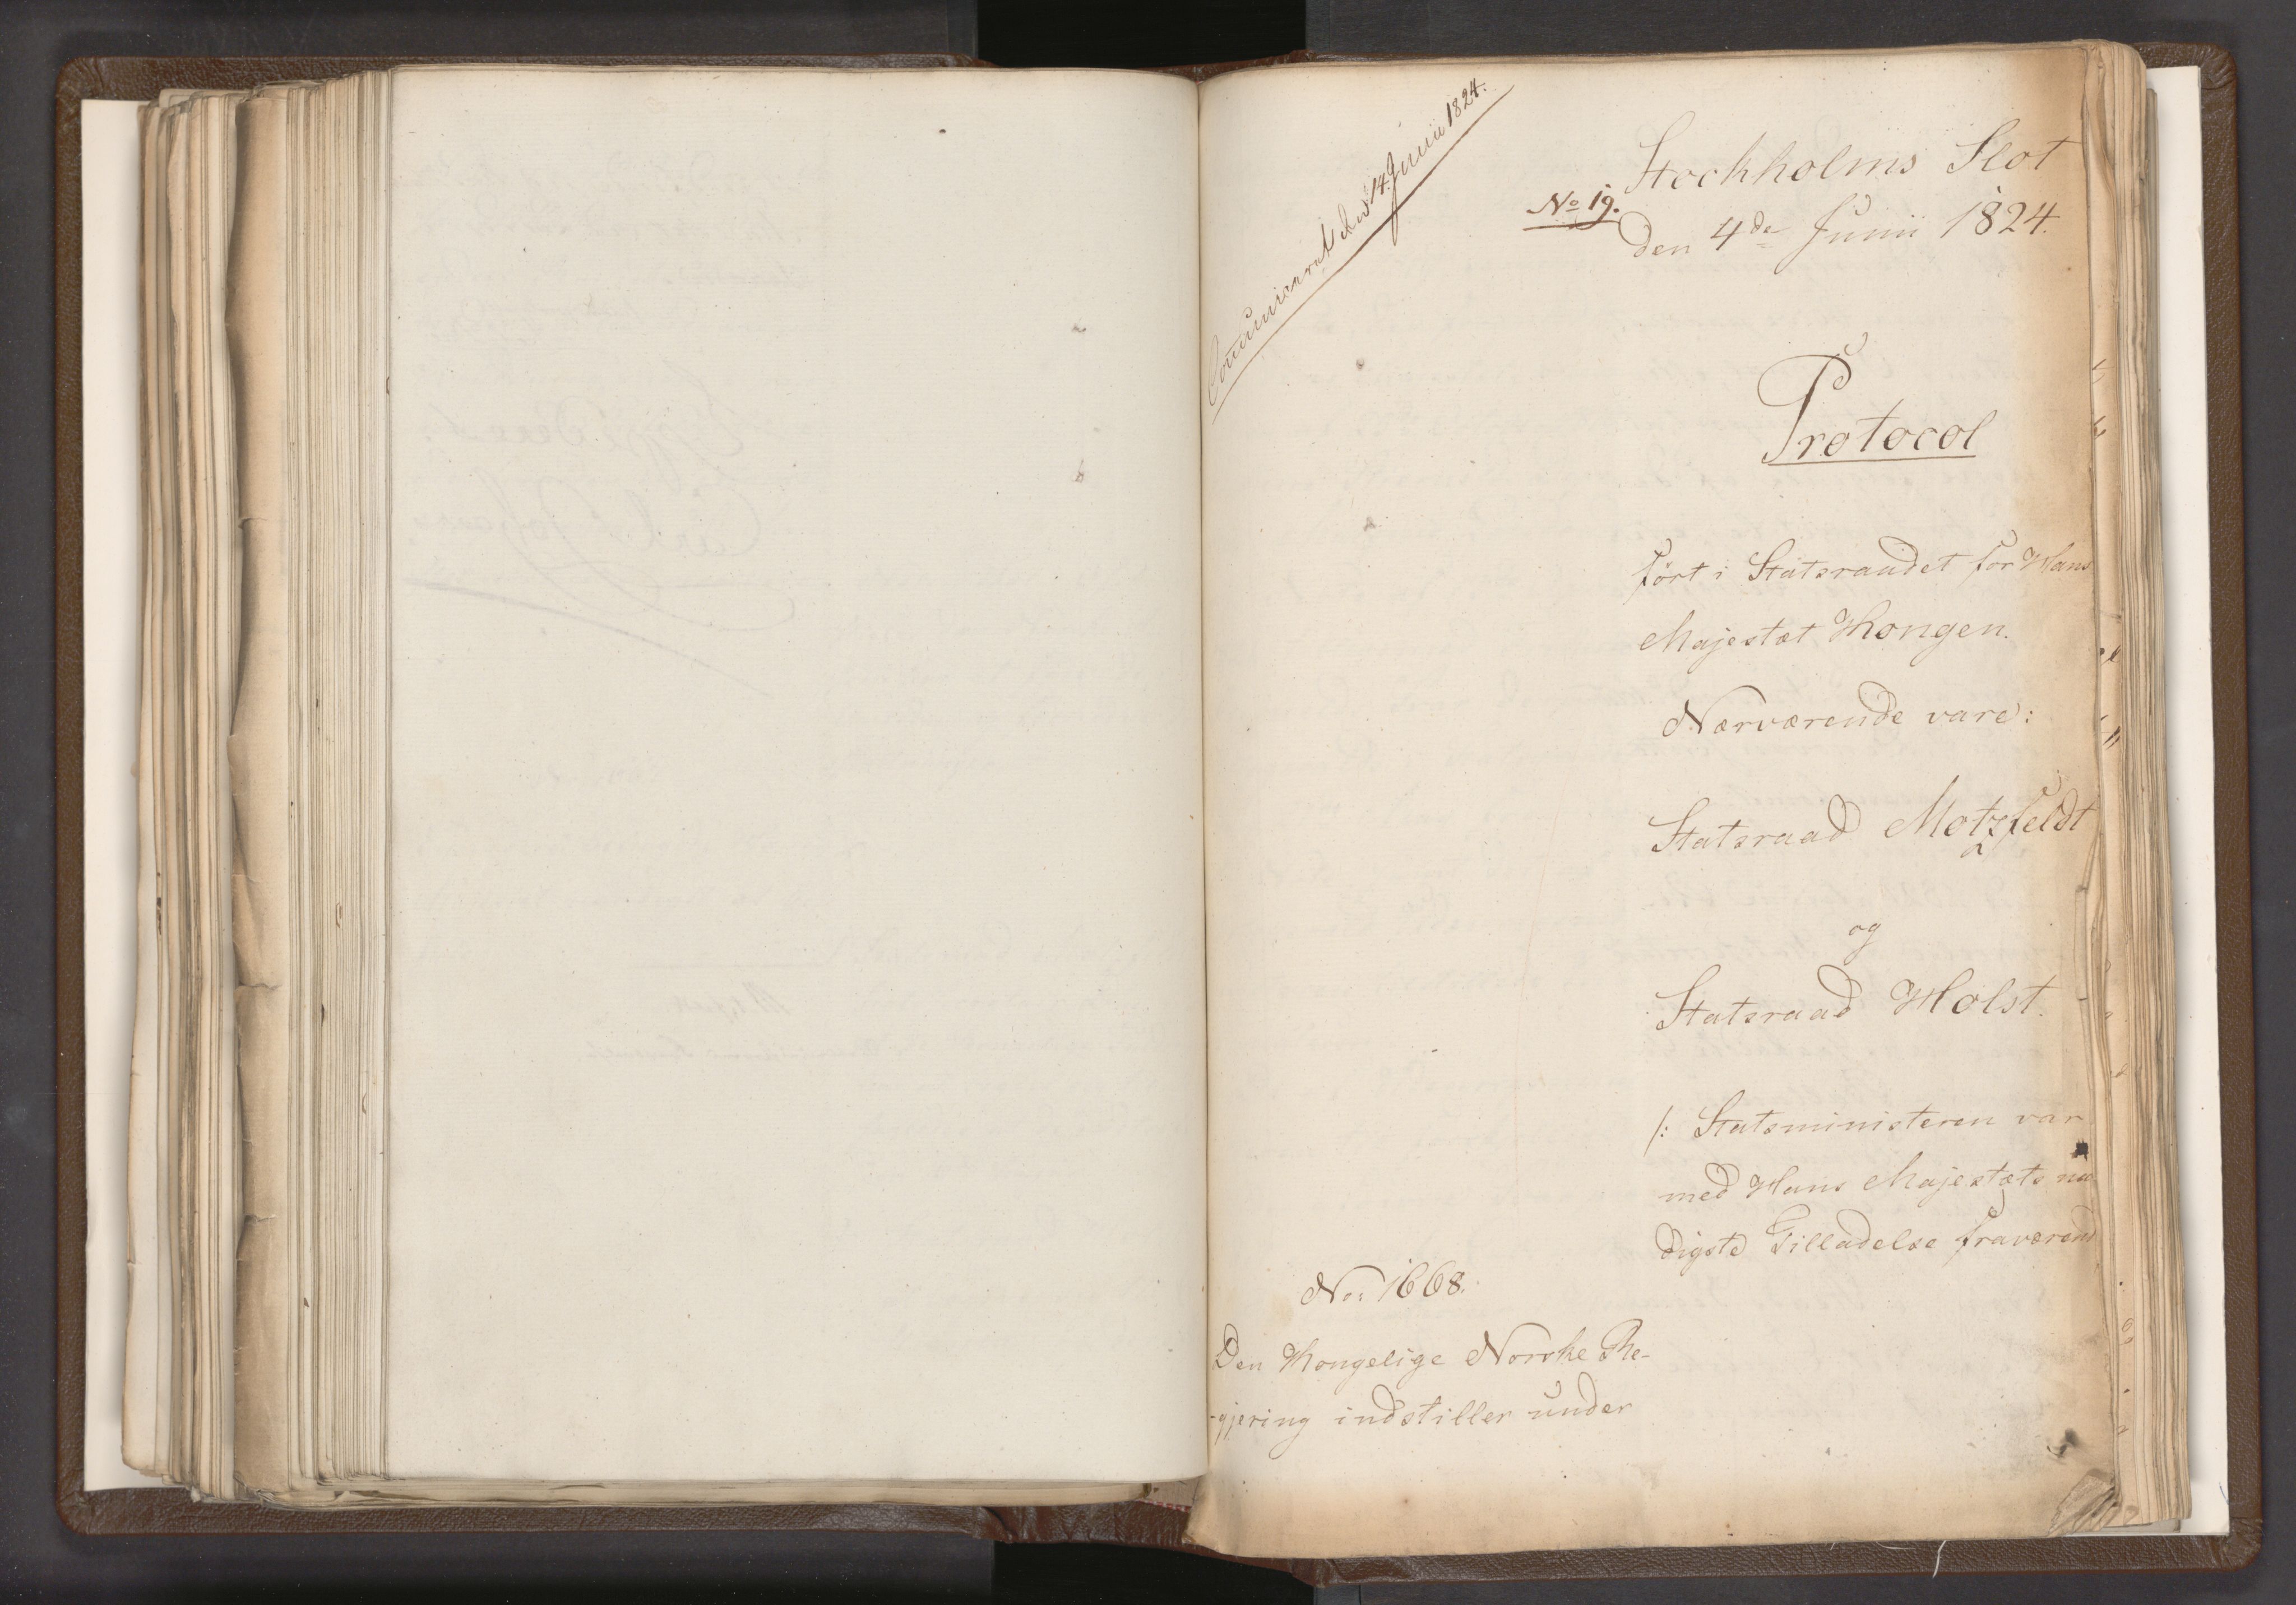 Communicaret den 14 Junii 1824.
No 19.
Stockholms Slot
den 4de Junii 1824.
Protocol
ført i Statsraadet for Hans
Majestæt Kongen.
Nærværende vare:
Statsraad Motzfeldt
og
Statsraad Holst.
/: Statsministeren var
med Hans Majestæts naa
digste Tilladelse fraværend
No: 1668.
Den Kongelige Norske Re-
-gjering indstiller under